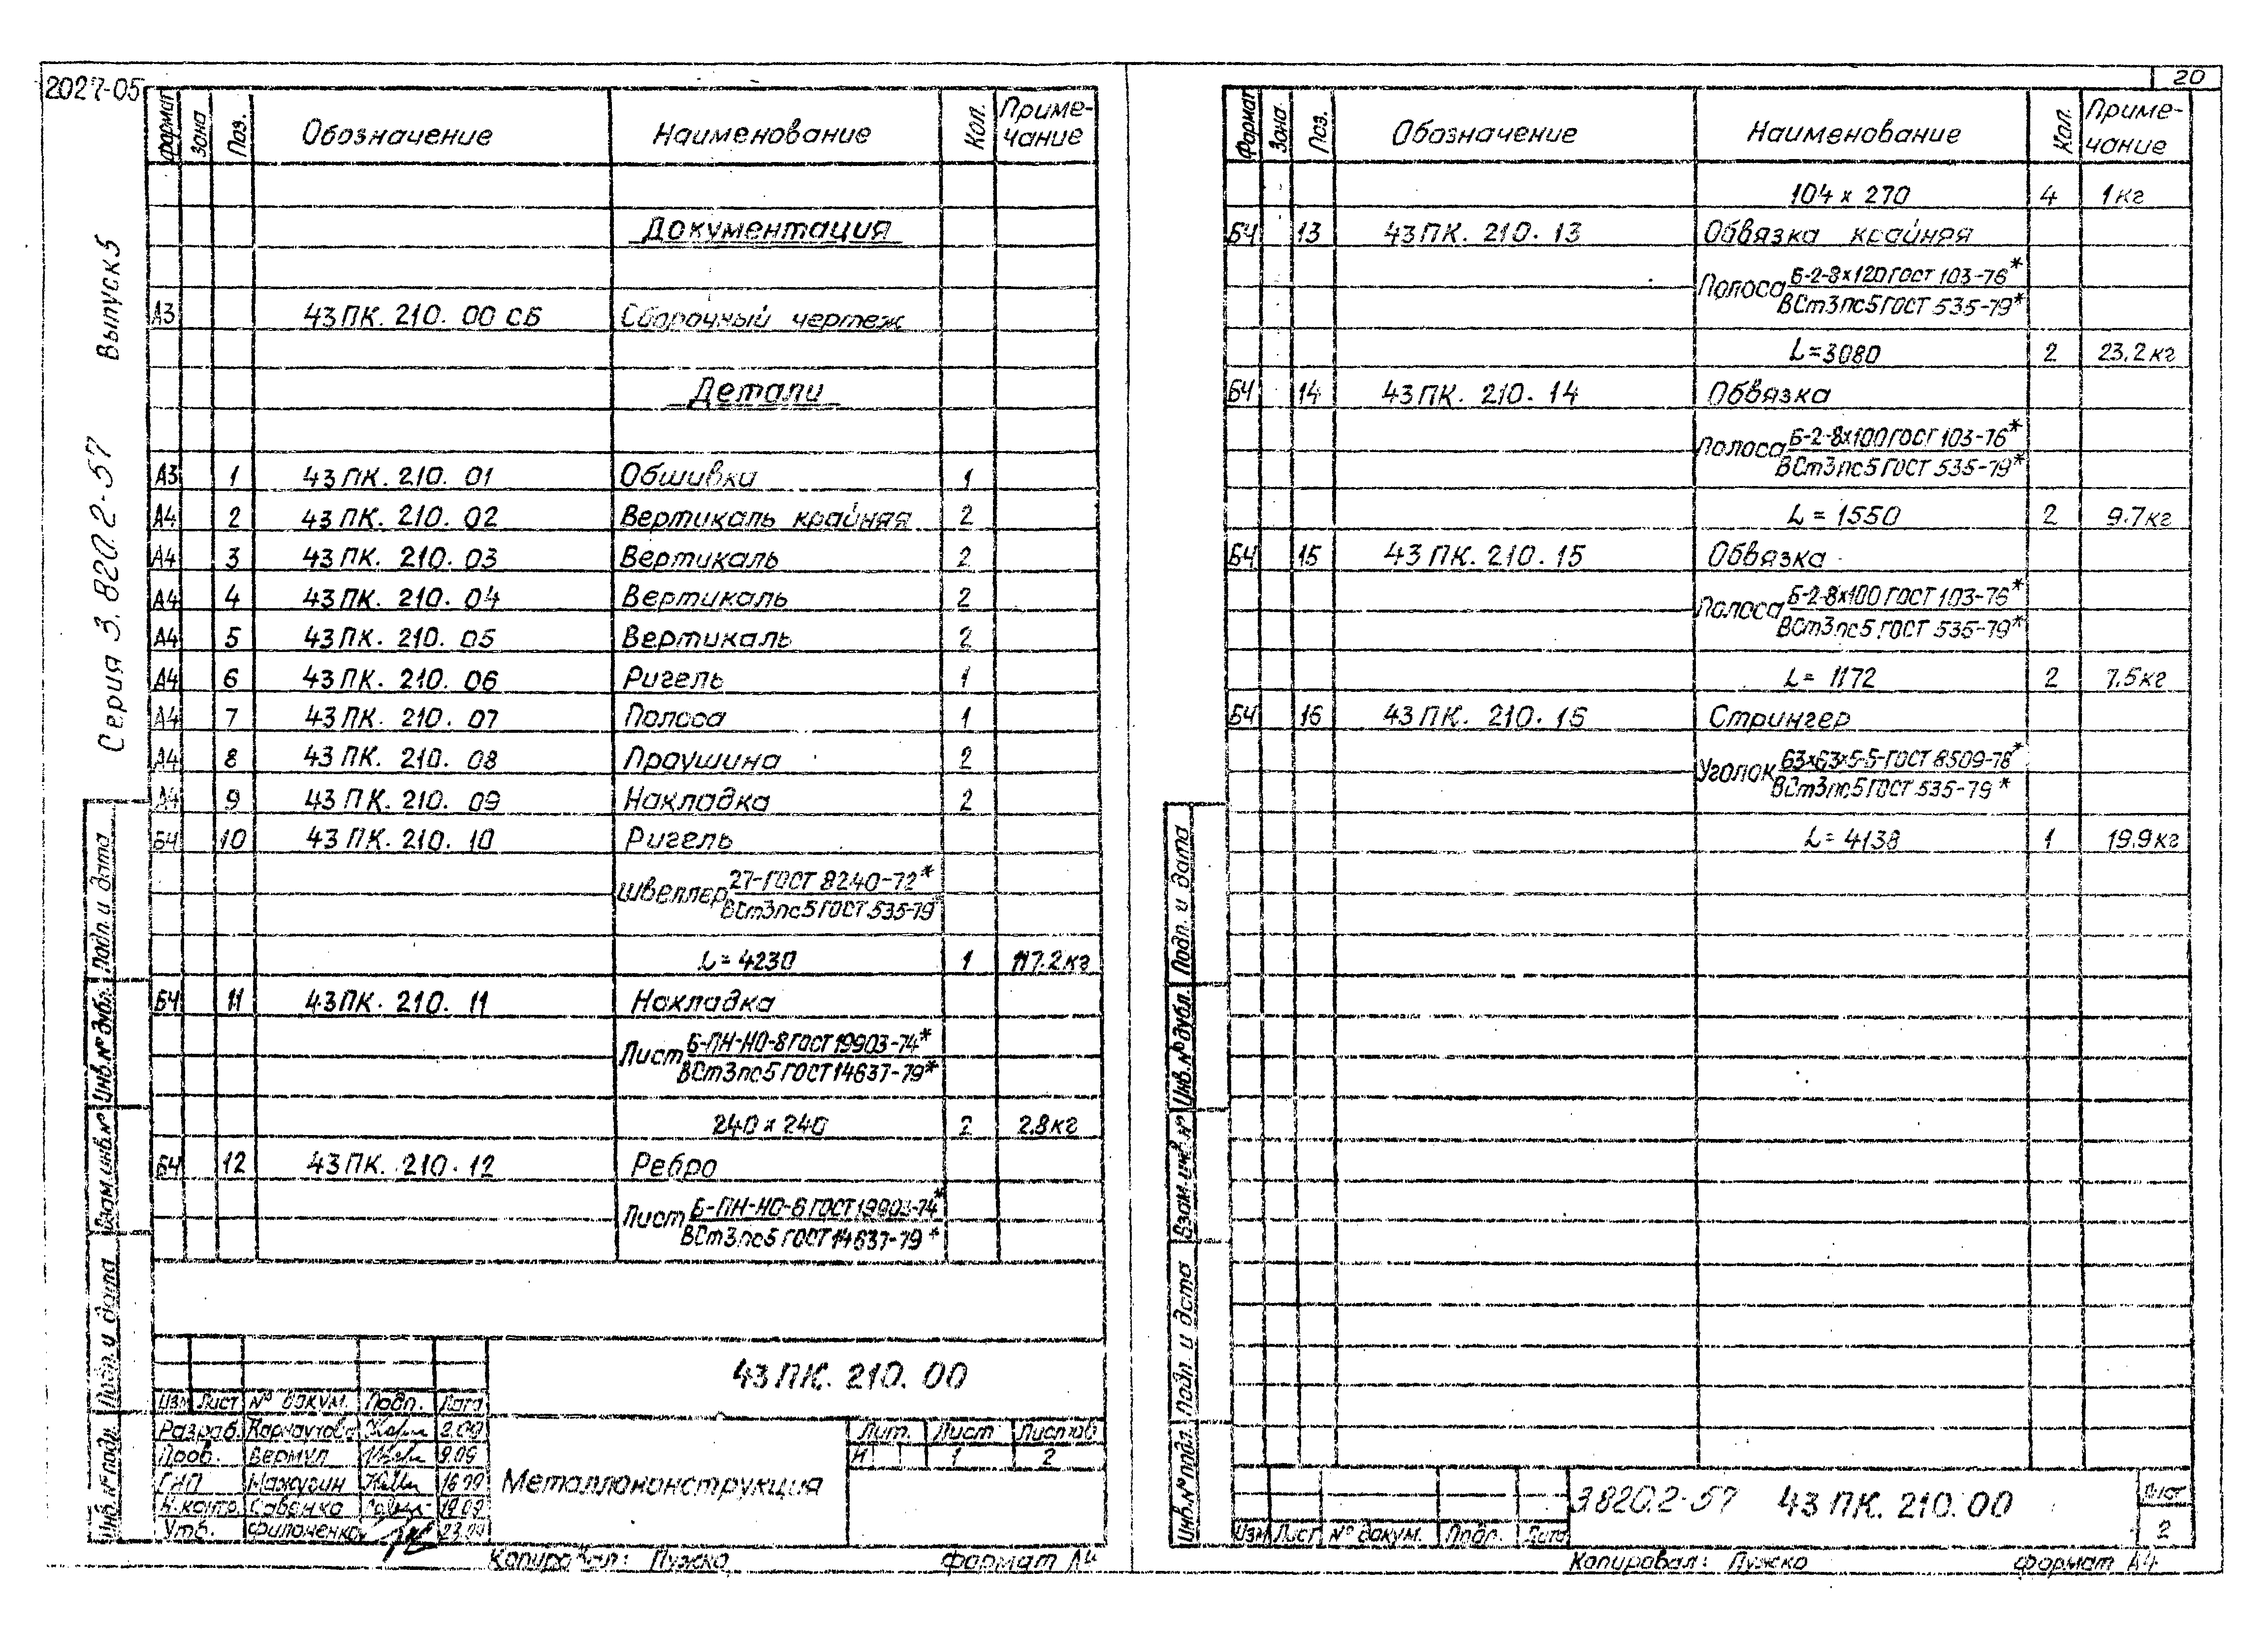 2027-05
Серия 3.820.2-57 Выпуск 5
Формат Зона Поз. Обозначение Наименование Кол. Приме-
чание
Документация
А3 43ПК. 210. 00 СБ Сборочный чертеж
Детали
А3 1 43ПК. 210. 01 Обшивка 1
А4 2 43ПК. 210. 02 Вертикаль крайняя 2
А4 3 43ПК. 210. 03 Вертикаль 2
А4 4 43ПК. 210. 04 Вертикаль 2
А4 5 43ПК. 210. 05 Вертикаль 2
А4 6 43ПК. 210. 06 Ригель 1
А4 7 43ПК. 210. 07 Полоса 1
А4 8 43ПК. 210. 08 Проушина 2
А4 9 43ПК. 210. 09 Накладка 2
БЧ 10 43ПК. 210. 10 Ригель
Швеллер 27-ГОСТ 8240-72*
ВСт3пс5 ГОСТ 535-79*
L=4230 1 117.2кг
БЧ 11 43ПК. 210. 11 Накладка
Лист Б-ПН-НО-8 ГОСТ 19903-74*
ВСт3пс5 ГОСТ 14637-79*
240 x 240 2 2.8кг
БЧ 12 43ПК. 210. 12 Ребро
Лист Б-ПН-НО-6 ГОСТ 19903-74*
ВСт3пс5 ГОСТ 14637-79*
43ПК. 210. 00
Изм Лист № докум. Подп. Дата
Разраб. 2.09
Пров. Вермул 9.09
ГИП Мажугин 16.09
Н.контр. Савенко 19.09
Утв. 23.09
Металлоконструкция
Лит. Лист Листов
И 1 2
Копировал: Пужко Формат А4
Инв.№ подл. Подп. и дата Взам.инв.№ Инв.№ дубл. Подп. и дата
20
Формат Зона Поз. Обозначение Наименование Кол. Приме-
чание
104 x 270 4 1кг
БЧ 13 43ПК. 210. 13 Обвязка крайняя
Полоса Б-2-8x120 ГОСТ 103-76*
ВСт3пс5 ГОСТ 535-79*
L=3080 2 23.2кг
БЧ 14 43ПК. 210. 14 Обвязка
Полоса Б-2-8x100 ГОСТ 103-76*
ВСт3пс5 ГОСТ 535-79*
L=1550 2 9.7кг
БЧ 15 43ПК. 210. 15 Обвязка
Полоса Б-2-8x100 ГОСТ 103-76*
ВСт3пс5 ГОСТ 535-79*
L=1172 2 7.5кг
БЧ 16 43ПК. 210. 16 Стрингер
Уголок 63x63x5-5-ГОСТ 8509-78*
ВСт3пс5 ГОСТ 535-79*
L=4138 1 19.9кг
Инв.№ подл. Подп. и дата Взам.инв.№ Инв.№ дубл. Подп. и дата
Изм Лист № докум. Подп. Дата
3820.2-57 43ПК. 210. 00
Лист
2
Копировал: Пужко Формат А4